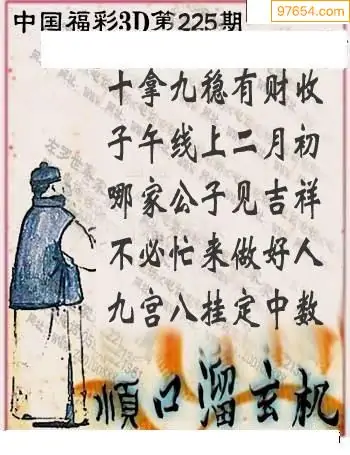 97654.com
中国福彩3D第225期
十拿九稳有财收
子午线上二月初
哪家公子见吉祥
不必忙来做好人
九宫八挂定中数
順口溜玄机